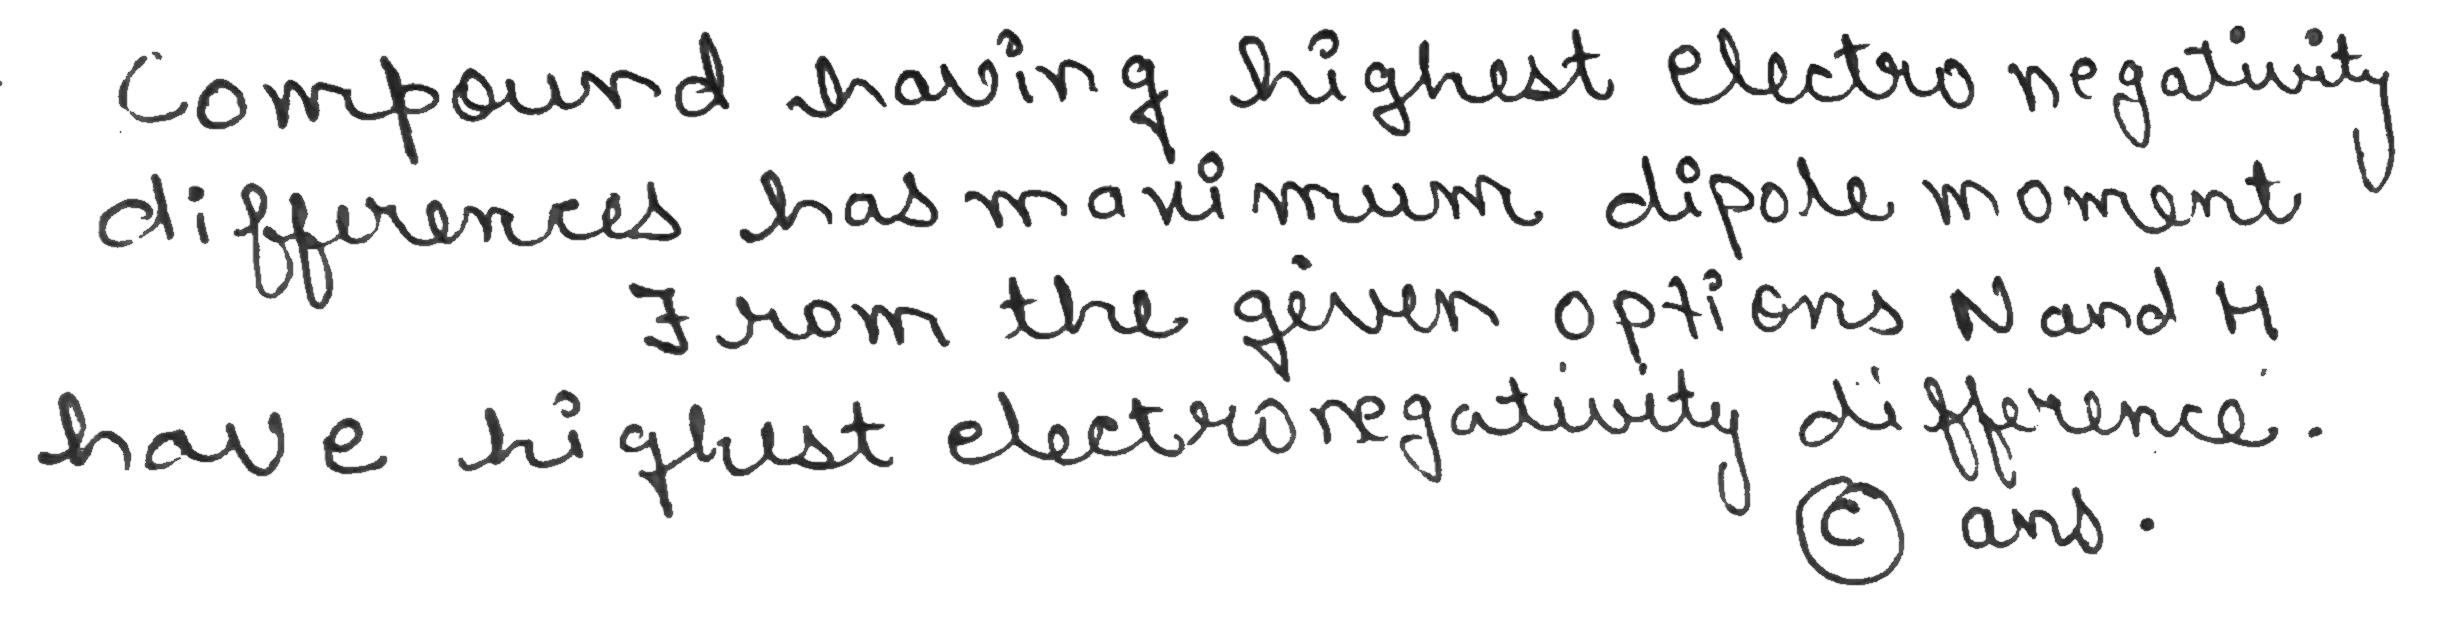 Compound having highest electronegativity
differences has maximum dipole moment
From the given options N and H
have highest electronegativity difference.
C ans.